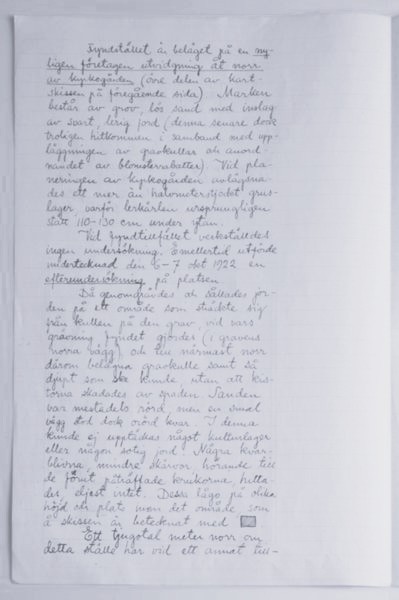 Fyndstället är beläget på en ny-
ligen företagen utvidgning åt norr
av kyrkogården (övre delen av kart-
skissen på föregående sida). Marken
består av grov, lös sand med inslag
av svart, lerig jord (denna senare dock
troligen hitkommen i samband med upp-
läggningen av gravkullar och anord-
nandet av blomsterrabatter). Vid pla-
neringen av kyrkogården avlägsna-
des ett mer än halvmetertjockt grus-
lager varför lerkärlen ursprungligen
stått 110-130 cm under ytan.
Vid fyndtillfället verkställdes
ingen undersökning. Emellertid utförde
undertecknad den 6-7 okt 1922 en
efterundersökning på platsen.
Då genomgrävdes och sållades jor-
den på ett område som sträckte sig
från kullen på den grav vid vars
grävning fyndet gjordes (i gravens
norra vägg) och till närmast norr
därom belägna gravkulle samt så
djupt som kunde utan att kis-
torna skadades av spaden. Sanden
var mestadels rörd, men en smal
vägg stod dock orörd kvar. I denna
kunde ej upptäckas något kulturlager
eller någon sotig jord. Några kvar-
blivna, mindre skärvor, hörande till
de förut påträffade krukorna hitta-
des, eljest intet. Dessa lågo på olika
höjd och plats inom det område som
å skissen är betecknat med
Ett tjugotal meter norr om
detta ställe har vid ett annat till-